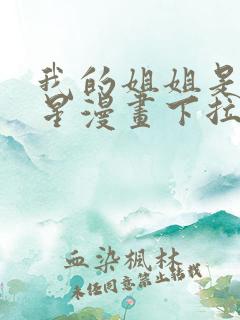 我的姐姐是
星漫畫下拉
血染楓林
未经同意禁止转载